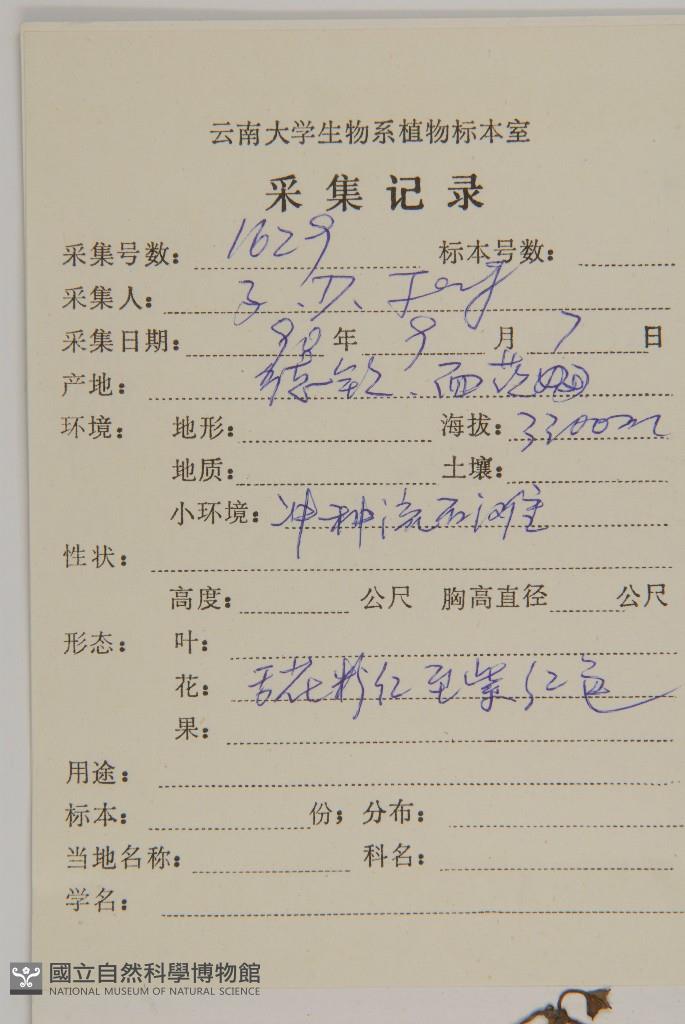 云南大学生物系植物标本室
采集记录
采集号数: 1629 标本号数:
采集人:
采集日期: 90 年 9 月 7 日
产地: 德钦、
环境: 地形: 海拔: 3300m
地质: 土壤:
小环境: 冲种流石滩
性状:
高度: 公尺 胸高直径 公尺
形态: 叶:
花: 舌花粉红至紫红色
果:
用途:
标本: 份; 分布:
当地名称: 科名:
学名:
國立自然科學博物館
NATIONAL MUSEUM OF NATURAL SCIENCE